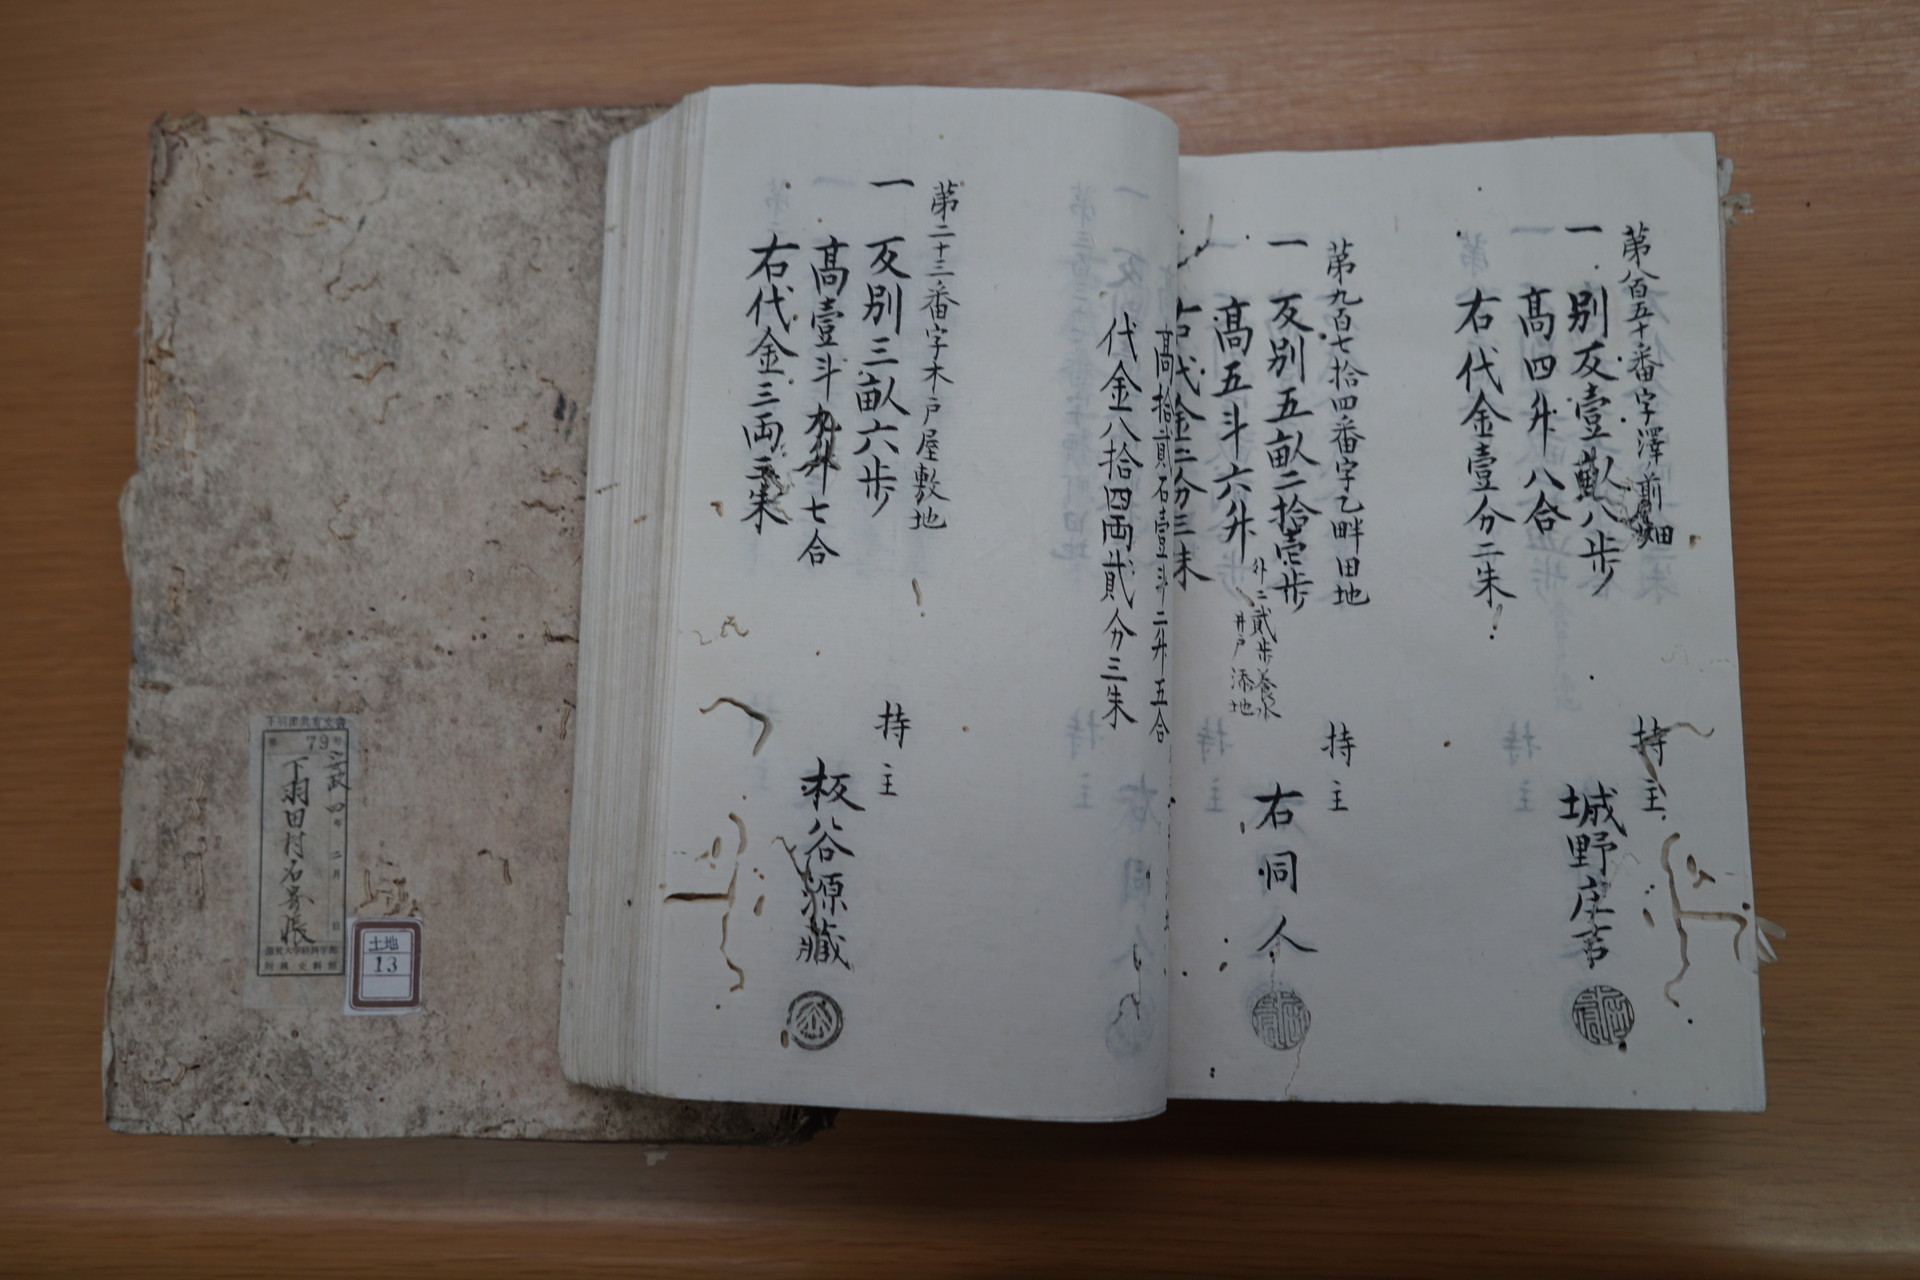 第八百五十番字澤前畑
一 別反壹畝八歩
高四升八合
右代金壹分二朱
持主
城野庄吉
第九百七拾四番字乙畔田地
一 反別五畝二拾壱歩
外ニ貳歩養水
井戸添地
高五斗六升
右代金二分三朱
持主
右同人
高拾貳石壹斗二升五合
代金八拾四両貳分三朱
第二十三番字木戸屋敷地
一 反別三畝六歩
高壹斗九升七合
右代金三両三朱
持主
板谷源藏
79号
四年二月 日
下羽田村名寄帳
土地
13